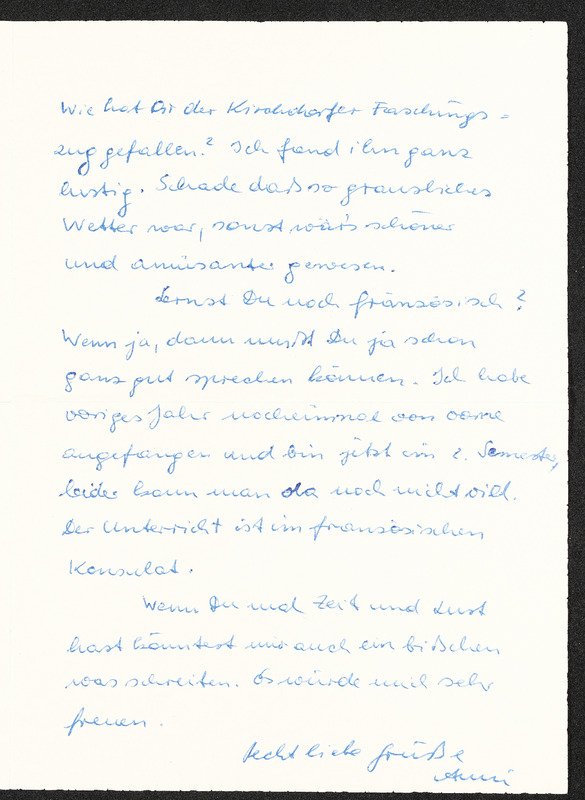 Wie hat Dir der Kirchdorfer Faschings=
zug gefallen? Ich fand ihn ganz
lustig. Schade daß so grausliches
Wetter war, sonst wär's schöner
und amüsanter gewesen.
Lernst Du noch französisch?
Wenn ja, dann mußt Du ja schon
ganz gut sprechen können. Ich habe
voriges Jahr nocheinmal von vorne
angefangen und bin jetzt im 2. Semester,
leider kann man da noch nicht viel.
Der Unterricht ist im französischen
Konsulat.
Wenn Du mal Zeit und Lust
hast könntest mir auch ein bißchen
was schreiben. Es würde mich sehr
freuen.
Recht liebe Grüße
Anni